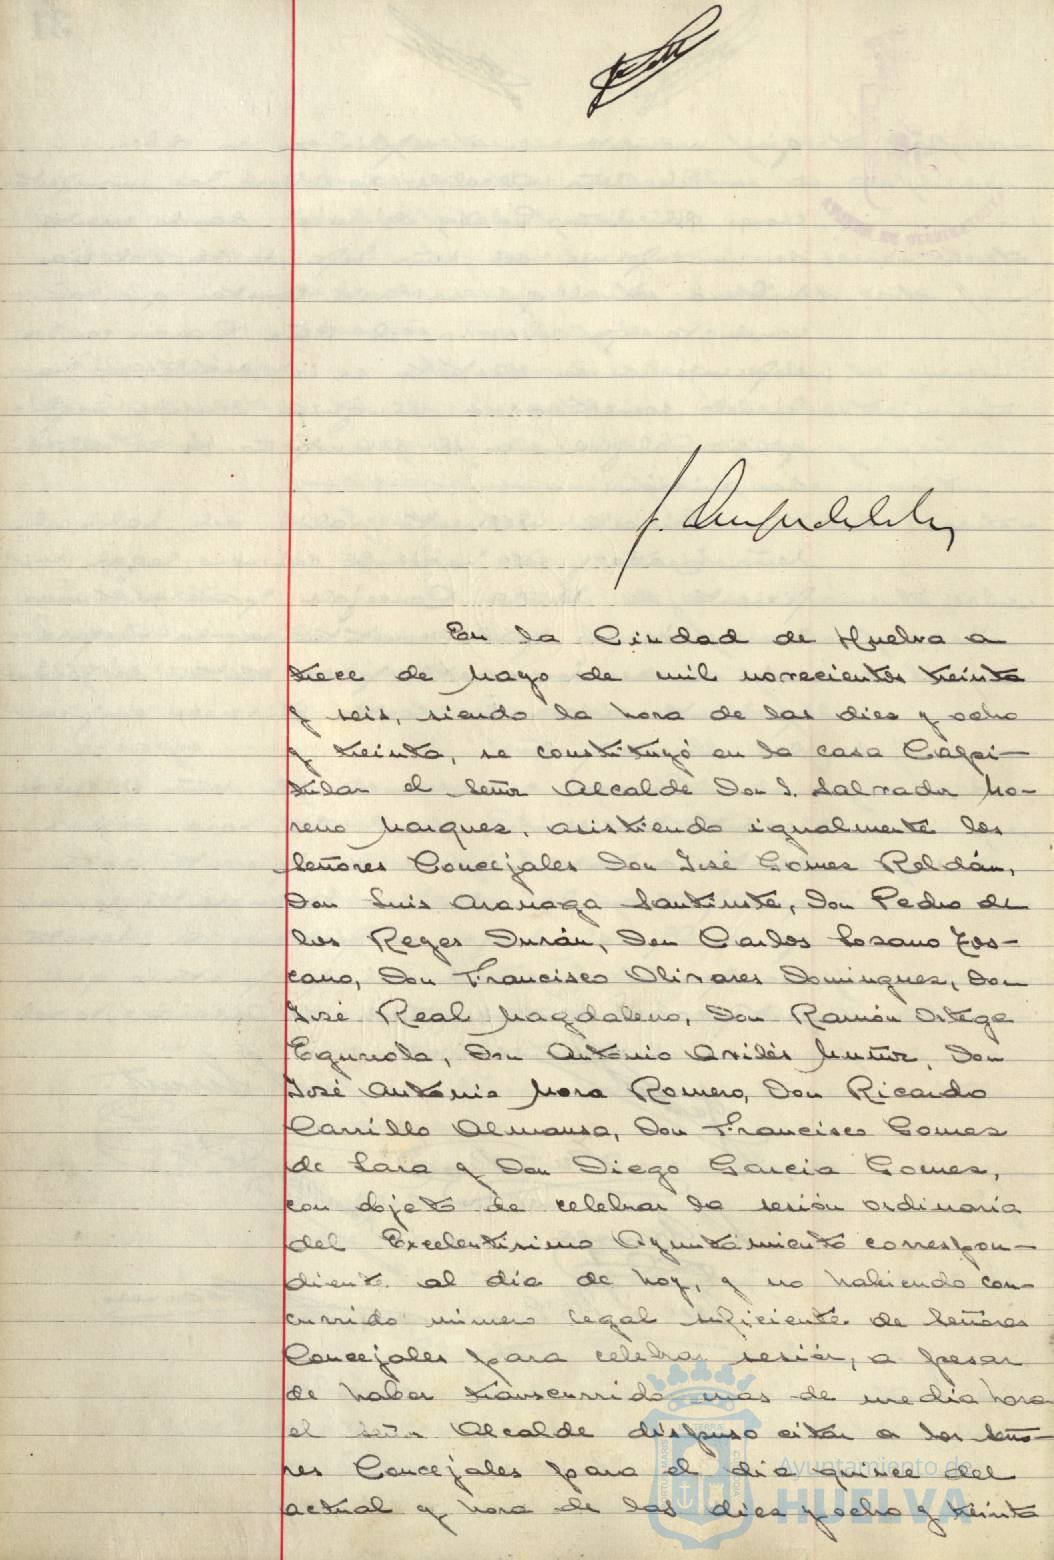 En la Ciudad de Huelva a
trece de Mayo de mil novecientos treinta
y seis, siendo la hora de las diez y ocho
y treinta, se constituyó en la casa Capi-
tular el Señor Alcalde Don S. Salvador Mo-
reno Marquez, asistiendo igualmente los
Señores Concejales Don José Gomez Roldán,
Don Luis Aranaga Santiuste, Don Pedro de
los Reyes Durán, Don Carlos Lozano Tos-
cano, Don Francisco Olivares Dominguez, Don
José Real Magdaleno, Don Ramón Ortega
Don Antonio Avilés Muñoz, Don
José Antonio Mora Romero, Don Ricardo
Carrillo Almansa, Don Francisco Gomez
de Lara y Don Diego Garcia Gomez,
con objeto de celebrar la sesión ordinaria
del Excelentisimo Ayuntamiento correspon-
diente al dia de hoy, y no habiendo con-
currido número legal suficiente de Señores
Concejales para celebrar sesión, a pesar
de haber transcurrido mas de media hora
el Señor Alcalde dispuso citar a los Seño-
res Concejales para el dia quince del
actual y hora de las diez y ocho y treinta
Ayuntamiento de
HUELVA